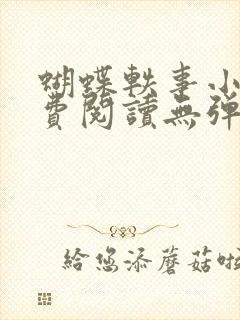 蝴蝶軼事小
費閱讀無彈
給您添蘑菇啦